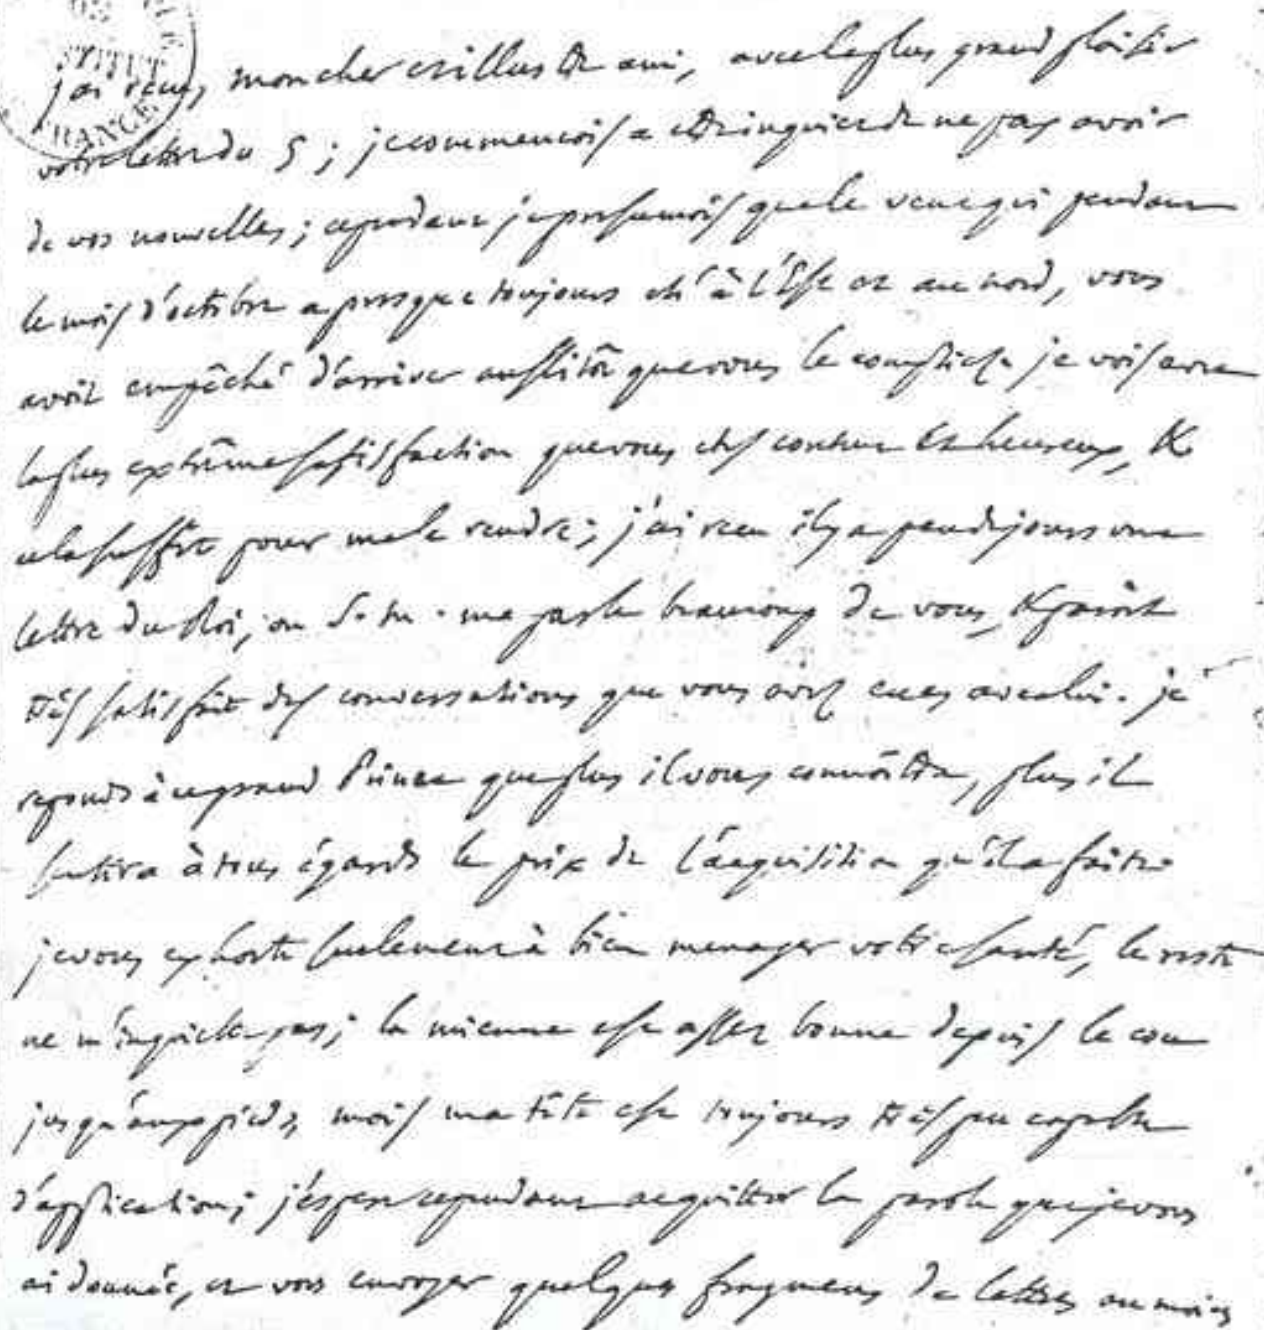 INSTITUT
FRANCE
j'ai reçu, mon cher et illustre ami, avec le plus grand plaisir
votre lettre du 5; je commençois a etre inquiet de ne pas avoir
de vos nouvelles; cependant je presumois que le vent qui pendant
le mois d'octobre a presque toujours eté à l'Est et au nord, vous
avoit empêché d'arriver aussitôt que vous le comptiez. je vois avec
la plus extrême satisfaction que vous etes content et heureux, &
cela suffit pour me le rendre; j'ai recu il y a peu de jours une
lettre du Roi, ou S. M. me parle beaucoup de vous, & paroit
très satisfait des conversations que vous avez eues avec lui. je
reponds à ce grand Prince que plus il vous connoîtra, plus il
sentira à tous égards le prix de l'acquisition qu'il a faite.
je vous exhorte seulement à bien menager votre santé, le reste
ne m'inquiete pas; la mienne est assez bonne depuis le cou
jusqu'aux pieds, mais ma tête est toujours très peu capable
d'application; j'espere cependant acquitter la parole que je vous
ai donnée, et vous envoyer quelques fragmens de lettres au moins